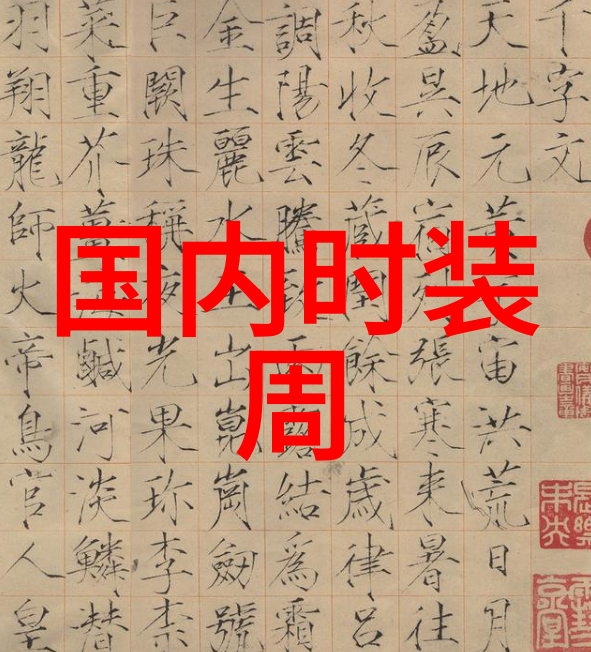 国内时装
周
千字文
天地元黄宇宙洪荒日月
盈昃辰宿列張寒来暑往
秋收冬蔵閏餘成歳律吕
調陽雲騰致雨露結為霜
金生麗水玉出崑崗劔號
巨闕珠稱夜光果珍李柰
菜重芥薑海鹹河淡鱗潜
羽翔龍師火帝鳥官人皇